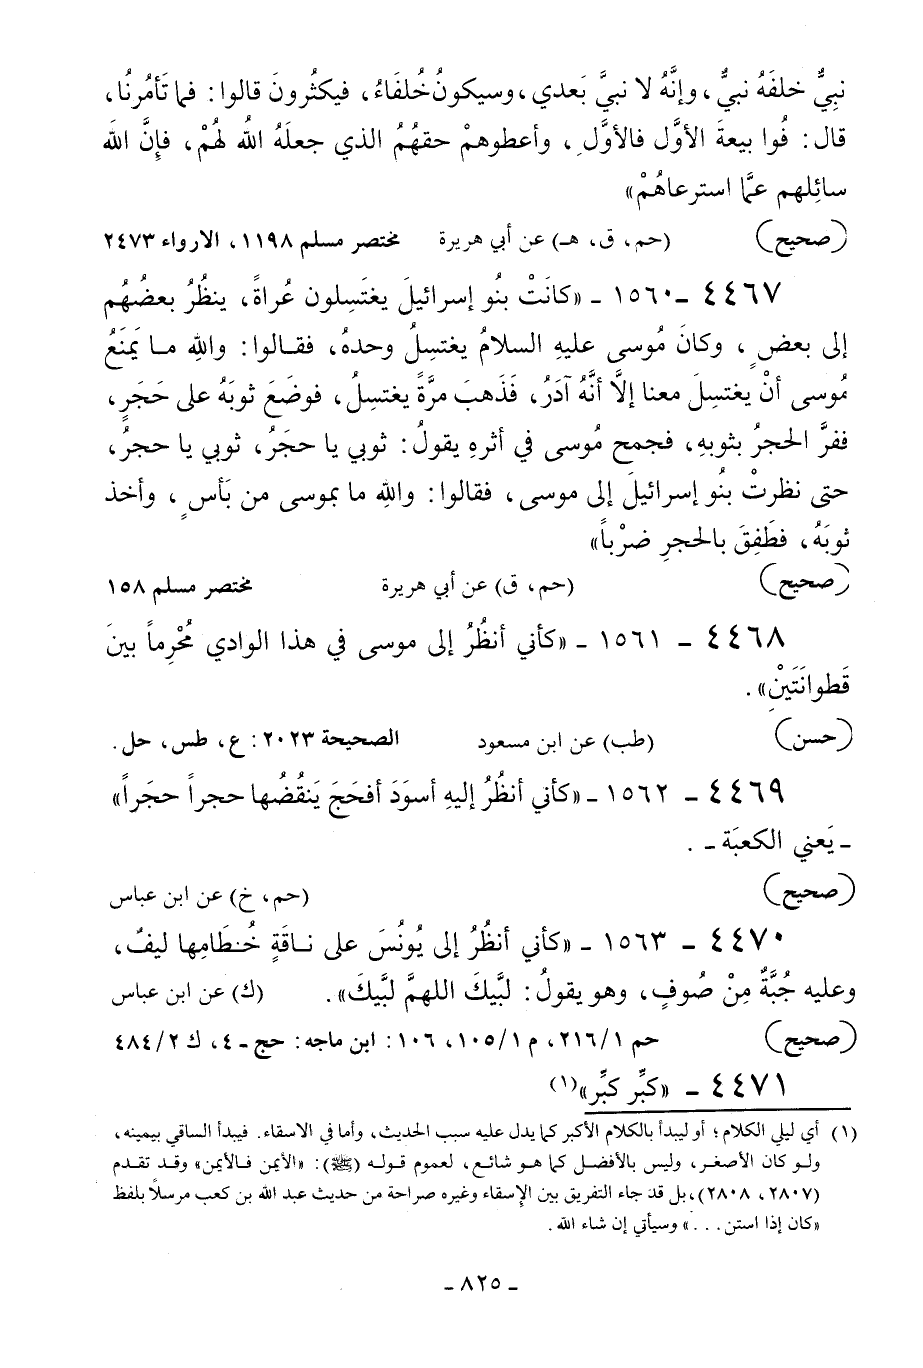 نبيٌّ خلفَهُ نبيٌّ، وإنَّهُ لا نبيَّ بَعدي، وسيكونُ خُلفَاءُ، فيكثُرونَ قالوا: فما تَأمُرنُا،
قال: فُوا بيعةَ الأوَّل فالأوَّلِ، وأعطوهمْ حقهُمُ الذي جعلَهُ اللهُ لهُمْ، فإِنَّ اللهَ
سائِلهم عمَّا استرعاهُمْ»
(صحيح) (حم، ق، هـ) عن أبي هريرة مختصر مسلم ١١٩٨، الارواء ٢٤٧٣
٤٤٦٧ -١٥٦٠ - «كانَتْ بنُو إسرائيلَ يغتَسِلون عُراةً، ينظُرُ بعضُهُم
إلى بعضٍ، وكانَ مُوسى عليهِ السلامُ يغتسِلُ وحدهُ، فقالوا: واللهِ ما يَمنَعُ
مُوسى أنْ يغتسِلَ معنا إلَّا أنَّهُ آدَرُ، فَذَهبَ مرَّةً يغتسِلُ، فوضَعَ ثوبَهُ على حَجَرٍ،
ففرَّ الحجرُ بثوبهِ، فجمح مُوسى في أثرهِ يقولُ: ثوبي يا حجَرُ، ثوبي يا حجرُ،
حتى نظرتْ بنُو إسرائيلَ إلى موسى، فقالوا: واللهِ ما بموسى من بَأسٍ، وأخذ
ثوبَهُ، فطَفِقَ بالحجرِ ضرْباً»
(صحيح) (حم، ق) عن أبي هريرة مختصر مسلم ١٥٨
٤٤٦٨ - ١٥٦١ - «كأني أنظُرُ إلى موسى في هذا الوادي مُحْرِماً بينَ
قَطوانَتَينْ».
(حسن) (طب) عن ابن مسعود الصحيحة ٢٠٢٣: ع، طس، حل.
٤٤٦٩ - ١٥٦٢ - «كأني أنظُرُ إليهِ أسوَدَ أفحَجَ يَنقُضُها حجراً حجَراً»
- يَعني الكعبَة - .
(صحيح) (حم، خ) عن ابن عباس
٤٤٧٠ - ١٥٦٣ - «كأني أنظُرُ إلى يُونُسَ على ناقَةٍ خُطَامِها ليفٌ،
وعليه جُبَّةٌ مِنْ صُوفٍ، وهو يقولُ: لبَّيكَ اللهمَّ لبَّيكَ». (ك) عن ابن عباس
(صحيح) حم ٢١٦/١، م ١٠٥/١، ١٠٦: ابن ماجه: حج - ٤، ك ٤٨٤/٢
٤٤٧١ - «كبِّر كبِّر»(١)
(١) أي ليلي الكلام؛ أو ليبدأ بالكلام الأكبر كما يدل عليه سبب الحديث، وأما في الاسقاء. فيبدأ الساقي بيمينه،
ولو كان الأصغر، وليس بالأفضل كما هو شائع، لعموم قوله (ﷺ): «الأيمن فالأيمن» وقد تقدم
(٢٨٠٧، ٢٨٠٨)، بل قد جاء التفريق بين الإسقاء وغيره صراحة من حديث عبد الله بن كعب مرسلاً بلفظ
«كان إذا استن...» وسيأتي إن شاء الله.
- ٨٢٥ -